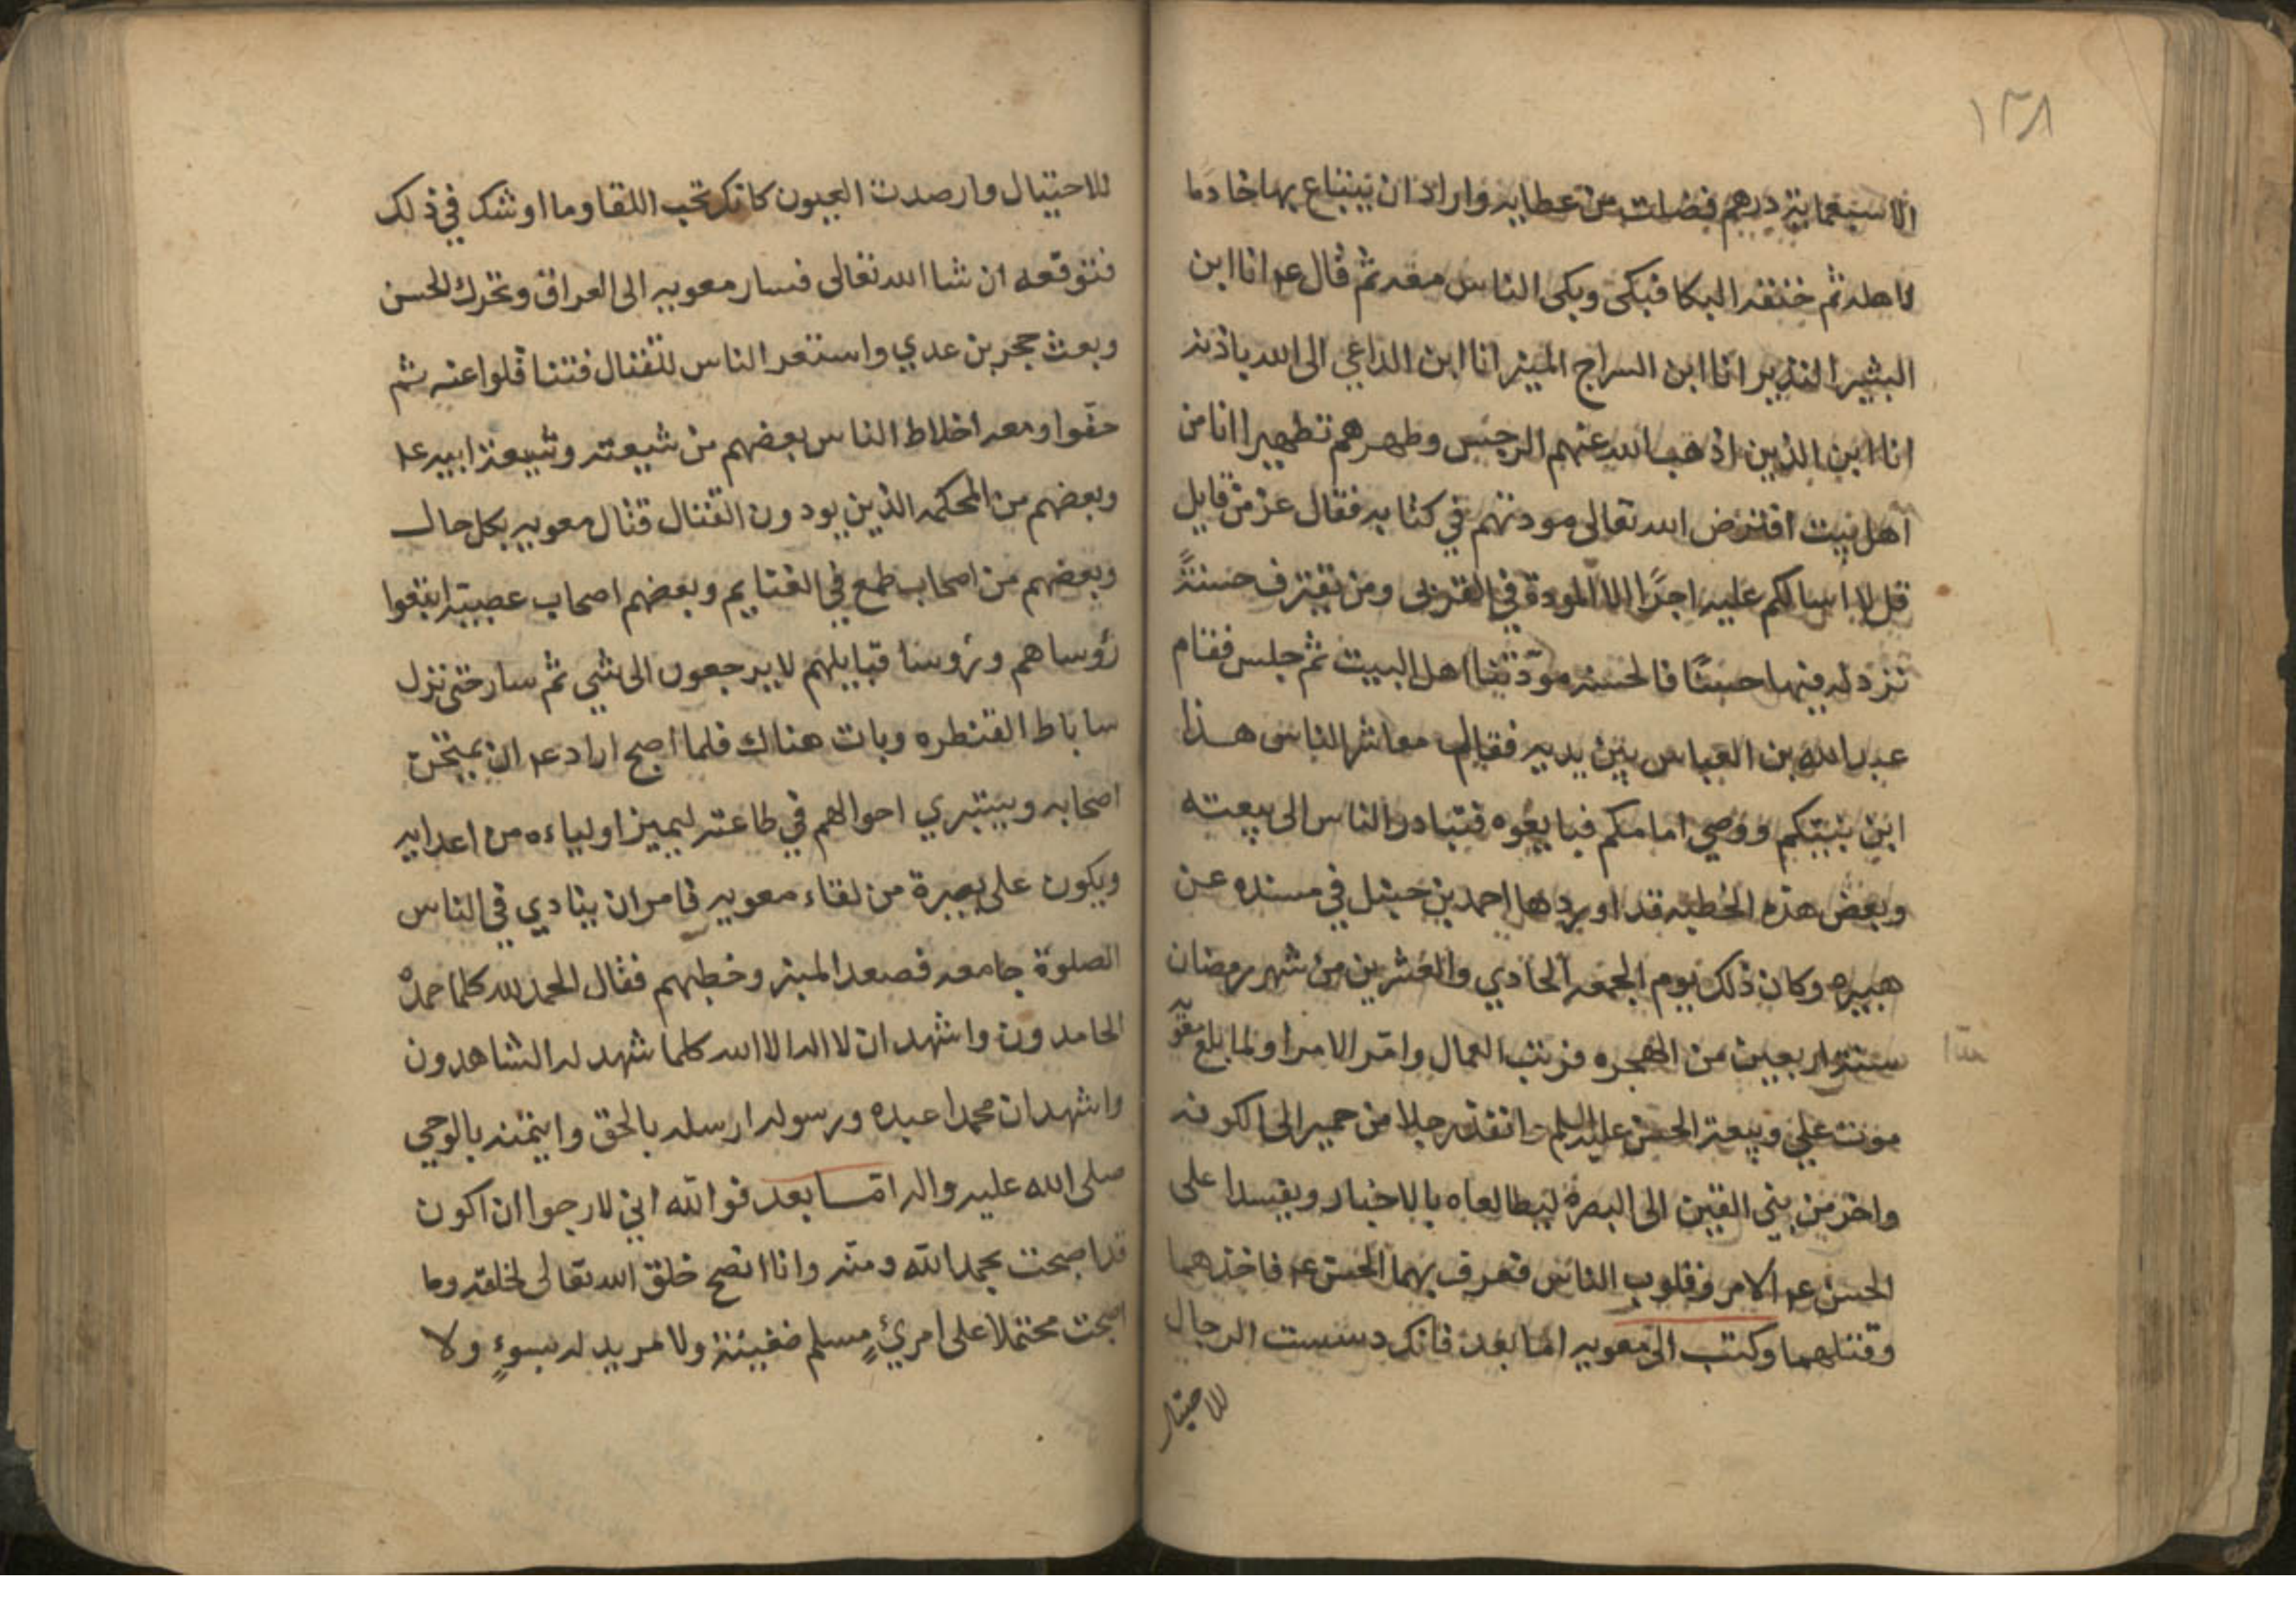 ١٣٨
الا سبعماية درهم فضلت من عطايه واراد ان يبتاع بها خادما
لاهله ثم خنقه البكا فبكى وبكى الناس معه ثم قال عم انا ابن
البشير النذير انا ابن السراج المنير انا ابن الداعي الى الله باذنه
انا ابن الذين اذهب الله عنهم الرجس وطهرهم تطهيرا انا من
اهل بيت افترض الله تعالى مودتهم في كتابه فقال عز من قايل
قل لا اسالكم عليه اجرًا الا المودة في القربى ومن يقترف حسنةً
نزد له فيها حسنًا فالحسنه مودّتنا اهل البيت ثم جلس فقام
عبد الله بن العباس بين يديه فقال معاشر الناس هذا
ابن نبيكم ووصي امامكم فبايعوه فتبادر الناس الى بيعته
وبعض هذه الخطبه قد اوردها احمد بن حنبل في مسنده عن
هبيره وكان ذلك يوم الجمعه الحادي والعشرين من شهر رمضان
سنة اربعين من الهجره فرتب العمال وامّر الامرا ولما بلغ معويه
موت علي وبيعة الحسن عليه السلم انفذ رجلا من حمير الى الكوفه
واخر من بني القين الى البصرة ليطالعاه بالاخبار ويفسدا على
الحسن عم الامر وقلوب الناس فعرف بهما الحسن عم فاخذهما
وقتلهما وكتب الى معويه اما بعد فانك دسست الرجال
للاحتيال
للاحتيال وارصدت العيون كانك تحب اللقا وما اوشك في ذلك
فتوقعه ان شا الله تعالى فسار معويه الى العراق وتحرك الحسن
وبعث حجر بن عدي واستعد الناس للقتال فتثاقلوا عنه ثم
خفّوا ومعه اخلاط الناس بعضهم من شيعته وشيعة ابيه عم
وبعضهم من المحكمه الذين يودون القتال قتال معويه بكل حال
وبعضهم من اصحاب طمع في الغنايم وبعضهم اصحاب عصبية اتبعوا
رؤساهم ورؤسا قبايلهم لا يرجعون الى شي ثم سار حتى نزل
ساباط القنطره وبات هناك فلما اصبح اراد عم ان يمتحن
اصحابه ويستبري احوالهم في طاعته ليميز اولياءه من اعدايه
ويكون على بصيرة من لقاء معويه فامر ان ينادي في الناس
الصلوة جامعه فصعد المنبر وخطبهم فقال الحمد لله كلما حمدهُ
الحامدون واشهد ان لا اله الا الله كلما شهد له الشاهدون
واشهد ان محمدا عبده ورسوله ارسله بالحق وايتمنه بالوحي
صلى الله عليه واله امّا بعد فوالله اني لارجوا ان اكون
قد اصبحت بحمد الله ومنّه وانا انصح خلق الله تعالى لخلقه وما
اصبحت محتملا على امرئٍ مسلم ضغينة ولا مريد له بسوءٍ ولا